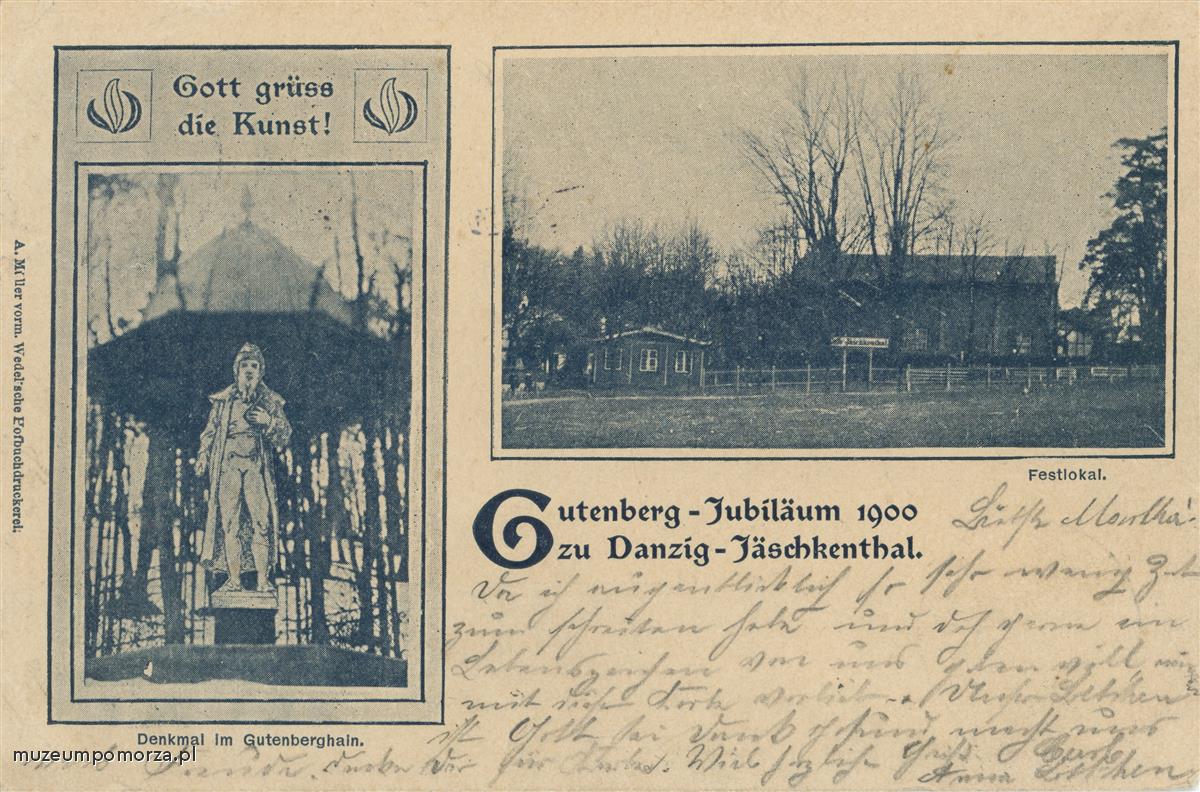 Gott grüss
die Kunst!
A. Müller vorm. Wedel'sche Hofbuchdruckerei.
Denkmal im Gutenberghain.
Jäschkenthal.
Festlokal.
Gutenberg-Jubiläum 1900
zu Danzig-Jäschkenthal.
Liebste Martha!
Da ich augenblicklich so sehr wenig Zeit
zum schreiben habe und doch gerne ein
Lebenszeichen von uns geben will
mit dieser Karte vorlieb.
ist Gott sei Dank gesund macht uns
Freude. für Karte. Viele herzliche Grüße
Anna
muzeumpomorza.pl